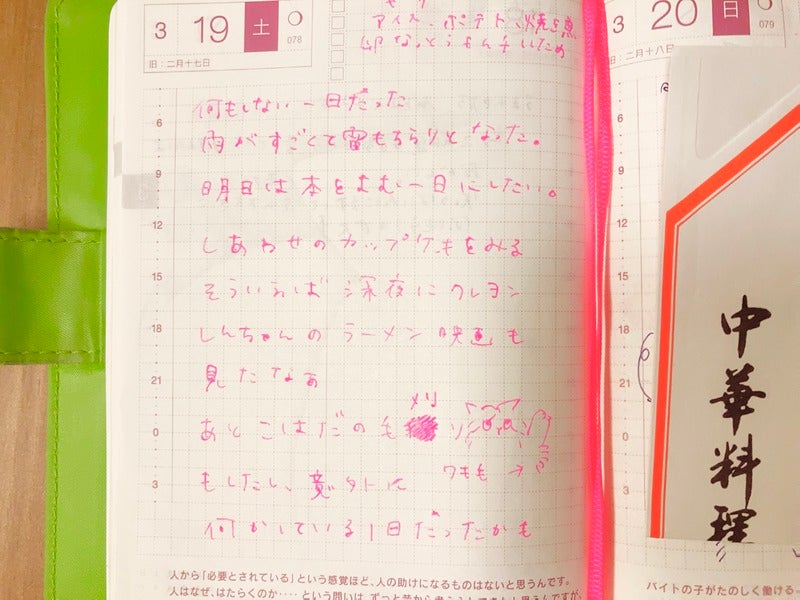 3 19 土
078
旧:二月十七日
アイス、ポテト、焼き魚
卵 なっとう
何もしない一日だった
雨がすごくて雷もちらりとなった。
明日は本をよむ一日にしたい。
しあわせのカップケーキをみる
そういえば 深夜にクレヨン
しんちゃんのラーメン映画も
見たなぁ
あとこはだの毛 メリ
ワキも →
もしたし、意外に
何かしている1日だったかも
6
9
12
15
18
21
0
3
人から「必要とされている」という感覚ほど、人の助けになるものはないと思うんです。
人はなぜ、はたらくのか‥‥という問いは、ずっと昔から
3 20 日
079
旧:二月十八日
6
9
12
15
18
21
0
3
中華料理
バイトの子がたのしく働ける